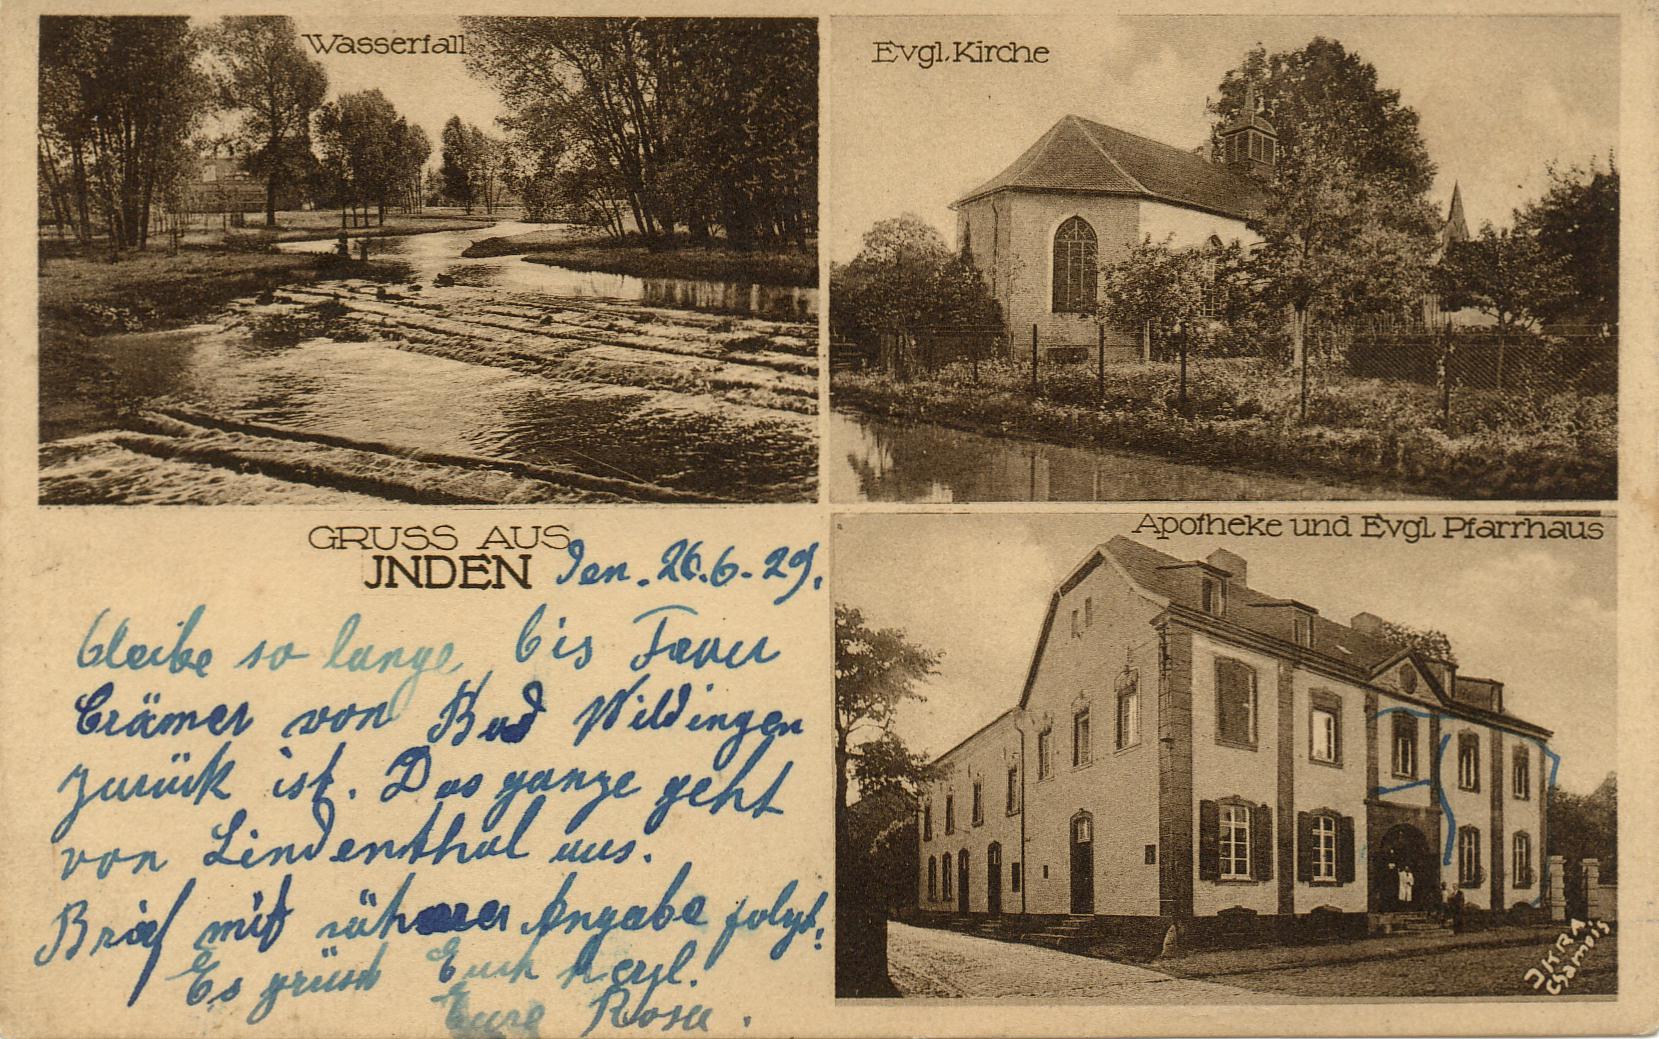 Wasserfall
Evgl. Kirche
GRUSS AUS
JNDEN
Apotheke und Evgl. Pfarrhaus
Den. 26.6.29.
bleibe so lange bis Frau
Crämer von Bad Wildingen
zurück ist. Das ganze geht
von Lindenthal aus.
Brief mit Angabe folgt.
Es grüsst Euch herzl.
Eure Rosa.
JKRA
Chamois